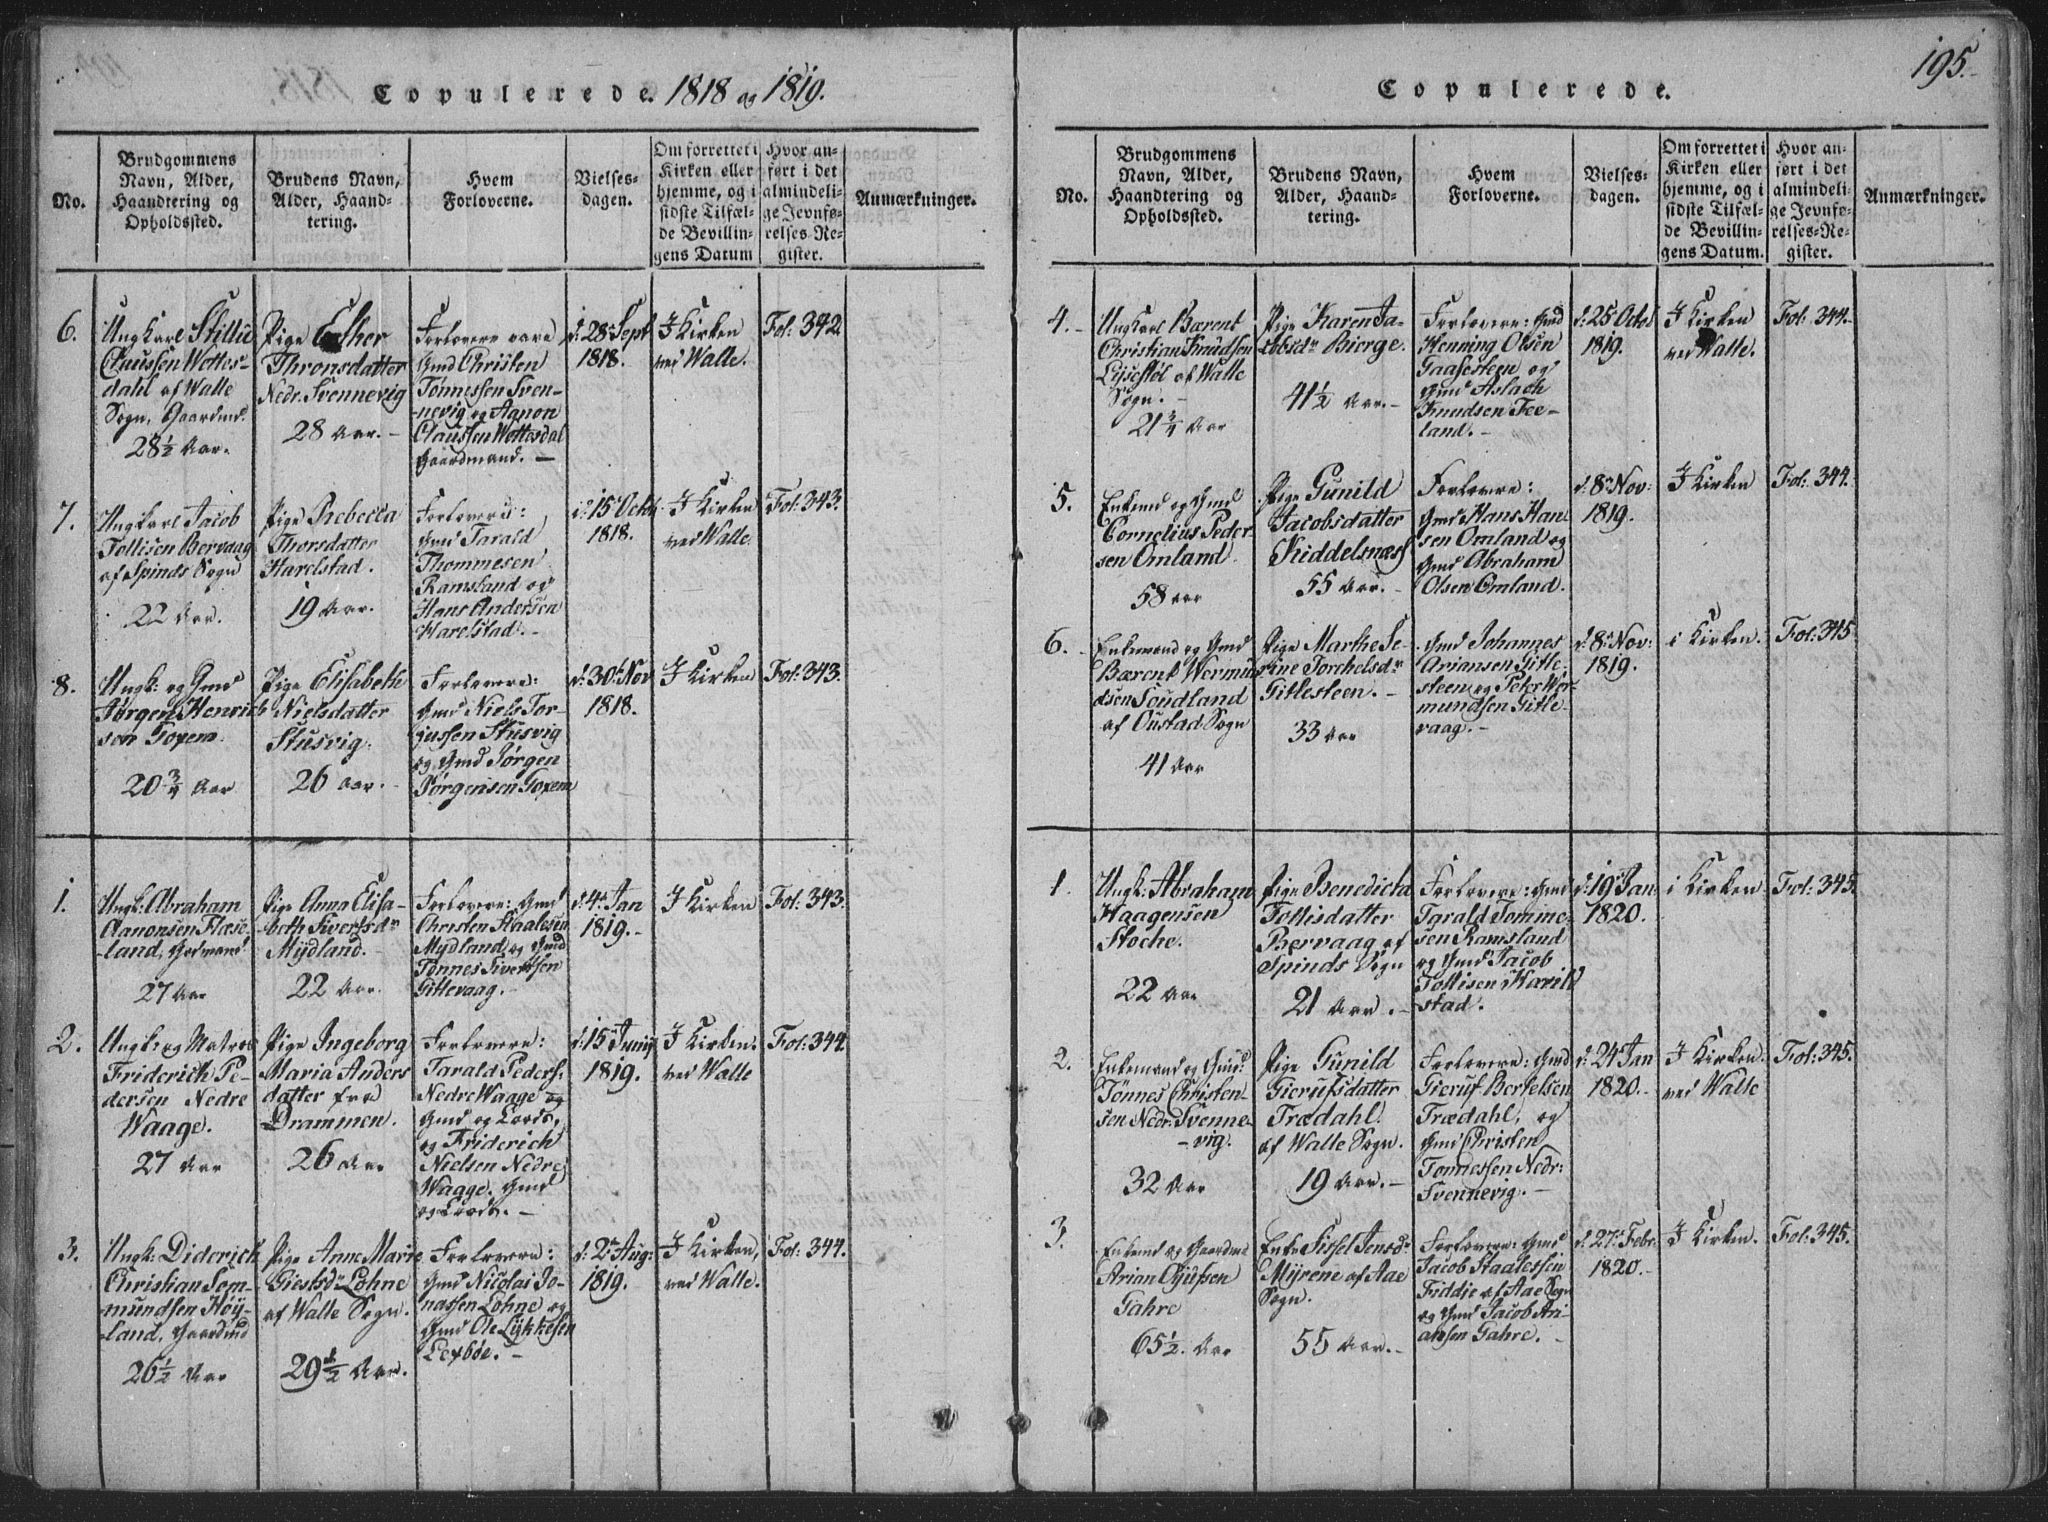 Copulerede. 1818 og 1819.
No.
Brudgommens
Navn, Alder,
Haandtering og
Opholdssted.
Brudens Navn,
Alder, Haand-
tering.
Hvem
Forloverne.
Vielses-
dagen.
Om forrettet i
Kirken eller
hjemme, og i
sidste Tilfæl-
de Bevillin-
gens Datum
Hvor an-
ført i det
almindeli-
ge Jevnfø-
relses-Re-
gister.
Anmærkninger.
6.
Ungkarl Stillu
Claussen Wottes-
dahl af Walle
Sogn, Gaardmd.
28½ Aar.
Pige Esther
Thronsdatter
Nedr. Svennevig
28 Aar.
Forlovere vare
Gmd Christen
Tønnessen Sven-
nevig og Aanon
Claussen Wottesdal
Gaardmand.
d: 28 Sept
1818.
I Kirken
ved Walle.
Fol: 342
7.
Ungkarl Jacob
Tollisen Bervaag
af Spinds Sogn
22 Aar.
Pige Rebecca
Thorsdatter
Harelstad.
19 Aar.
Forlovere:
Gmd Tarald
Thommesen
Ramsland og
Hans Andersen
Harelstad.
d: 15 Octb
1818.
I Kirken
ved Walle.
Fol: 343.
8.
Ungk: og Gmd
Jørgen Henrich
sen Goxem
20¾ Aar
Pige Elisabeth
Nielsdatter
Stusvig.
26 Aar.
Forlovere:
Gmd Niels Tor-
jussen Stusvig
og Gmd Jørgen
Jørgensen Goxem
d: 30 Nov
1818.
I Kirken
Fol: 343.
1.
Ungk: Abraham
Aanonsen Flase-
land, Gaardmand
27 Aar
Pige Anna Elisa-
beth Siversdr
Mydland.
22 Aar.
Forlovere: Gmd
Christen Staalesen
Mydland og Gmd
Tønnes Sivertsen
Gitlevaag.
d: 4 Jan
1819.
I Kirken
Fol: 343.
2.
Ungk: og Matros
Friderich Pe-
dersen Nedre
Waage.
27 Aar
Pige Ingeborg
Maria Anders
datter fra
Drammen.
26 Aar
Forlovere:
Tarald Peders:
Nedre Waage
Gmd og Lods,
og Friderich
Nielsen Nedre
Waage. Gmd
og Lods.
d: 15 Junij
1819.
I Kirken
ved Walle
Fol: 344
3.
Ungk: Diderich
Christian Som-
mundsen Høy-
land, Gaardmd
26½ Aar
Pige Anne Marie
Giertsdr Lohne
af Walle Sogn.
29½ Aar.
Forlovere:
Gmd Nicolai Jo-
nassen Lohne og
Gmd Ole Lykkesen
Lexbøe.
d: 2 Aug:
1819.
I Kirken
ved Walle.
Fol: 344.
Copulerede.
195.
No.
Brudgommens
Navn, Alder,
Haandtering og
Opholdssted.
Brudens Navn,
Alder, Haand-
tering.
Hvem
Forloverne.
Vielses-
dagen.
Om forrettet i
Kirken eller
hjemme, og i
sidste Tilfæl-
de Bevillin-
gens Datum.
Hvor an-
ført i det
almindeli-
ge Jevnfø-
relses-Re-
gister.
Anmærkninger.
4.
Ungkarl Bærent
Christian Knudsen
Lisestøl af Walle
Sogn.
21¾ Aar
Pige Karen Ja-
cobsdr Bierge.
41½ Aar.
Forlovere: Gmd
Henning Olsen
Gaasesteen og
Gmd Aslach
Knudsen Fee-
land.
d: 25 Octob
1819.
I Kirken
ved Walle.
Fol: 344.
5.
Enkemd og Gmd
Cornelius Peder
sen Omland.
58 aar
Pige Gunild
Jacobsdatter
Kiddelsnæss
55 Aar.
Forlovere:
Gmd Hans Han
sen Omland og
Gmd Abraham
Olsen Omland.
d: 8 Nov:
1819.
I Kirken
Fol: 344.
6.
Enkemand og Gmd
Bærent Wermun
dsen Soudland
af Oustad Sogn
41 Aar
Pige Marthe Se-
rine Torchelsdr
Gitlesteen.
33 Aar
Gmd Johannes
Ariansen Gitle-
steen og Peter Wer-
mundsen Gitle-
vaag.
d: 8 Nov:
1819.
i Kirken.
Fol: 345
1.
Ungk: Abraham
Haagensen
Stoche.
22 Aar
Pige Benedicta
Tollisdatter
Bervaag af
Spinds Sogn
21 Aar.
Forlovere: Gmd
Tarald Tomme-
sen Ramsland
og Gmd Jacob
Tollisen Harild
stad.
d: 19 Jan:
1820.
i Kirken
Fol: 345.
2.
Enkemand og Gmd:
Tønnes Christen-
sen Nedr. Svenne-
vig.
32 Aar
Pige Gunild
Gierulfsdatter
Trædahl.
af Walle Sogn.
19 Aar.
Forlovere: Gmd
Gieruf Bertelsen
Trædahl, og
Gmd Christen
Tønnessen Nedr:
Svennevig.
d: 24 Jan
1820.
I Kirken.
ved Walle
Fol: 345.
3.
Enkemd og Gaardmd
Arian
Gahre
65½ Aar
Enke Sissel Jensdr
Myrene af Aae
Sogn.
55 Aar.
Forlovere: Gmd
Jacob Staalessen
Fiddie af Aae Sogn
og Gmd Jacob Ari-
ansen Gahre.
d: 27 Febr
1820.
I Kirken.
Fol: 345.